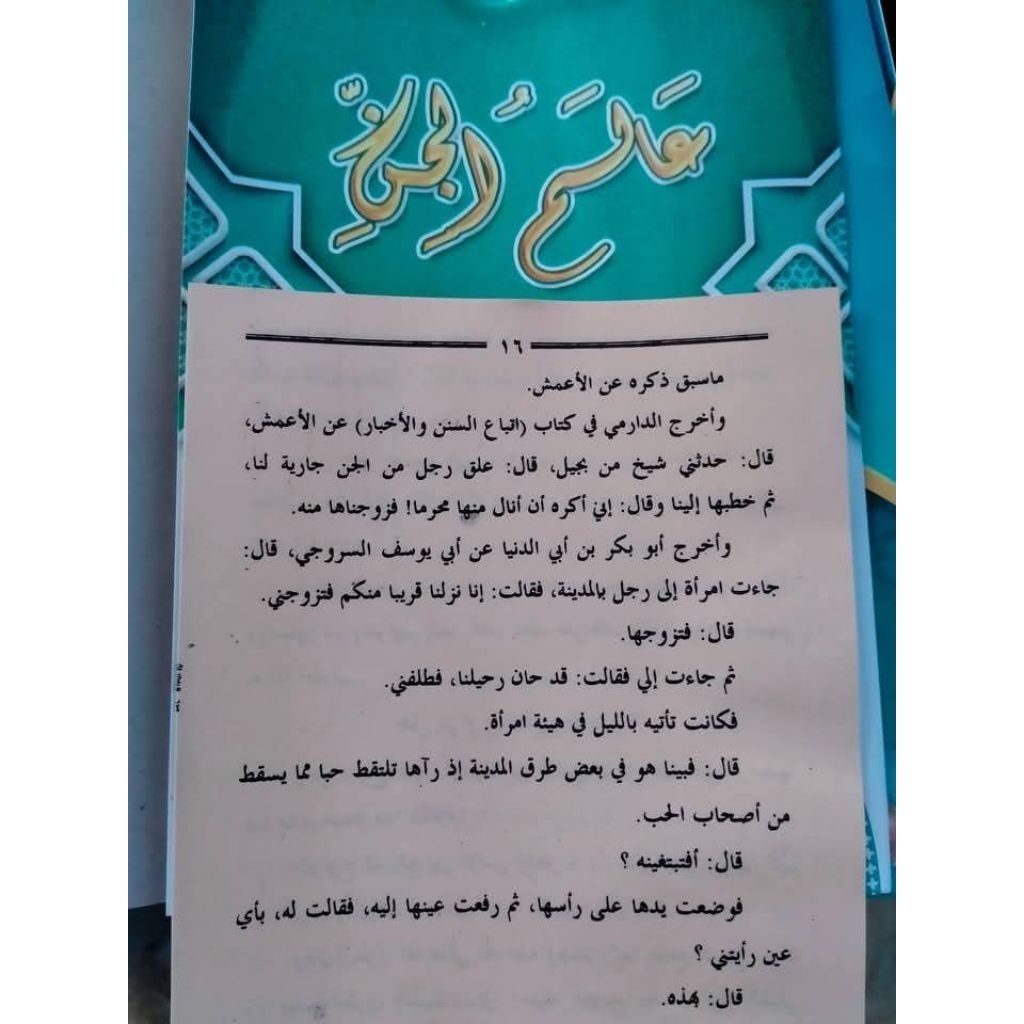 عَالَمُ الجِنِّ
١٦
ماسبق ذكره عن الأعمش.
وأخرج الدارمي في كتاب (اتباع السنن والأخبار) عن الأعمش،
قال: حدثني شيخ من بجيل، قال: علق رجل من الجن جارية لنا،
ثم خطبها إلينا وقال: إني أكره أن أنال منها محرما! فزوجناها منه.
وأخرج أبو بكر بن أبي الدنيا عن أبي يوسف السروجي، قال:
جاءت امرأة إلى رجل بالمدينة، فقالت: إنا نزلنا قريبا منكم فتزوجني.
قال: فتزوجها.
ثم جاءت إلي فقالت: قد حان رحيلنا، فطلفني.
فكانت تأتيه بالليل في هيئة امرأة.
قال: فبينا هو في بعض طرق المدينة إذ رآها تلتقط حبا مما يسقط
من أصحاب الحب.
قال: أفتبتغينه ؟
فوضعت يدها على رأسها، ثم رفعت عينها إليه، فقالت له، بأي
عين رأيتني ؟
قال: بهذه.